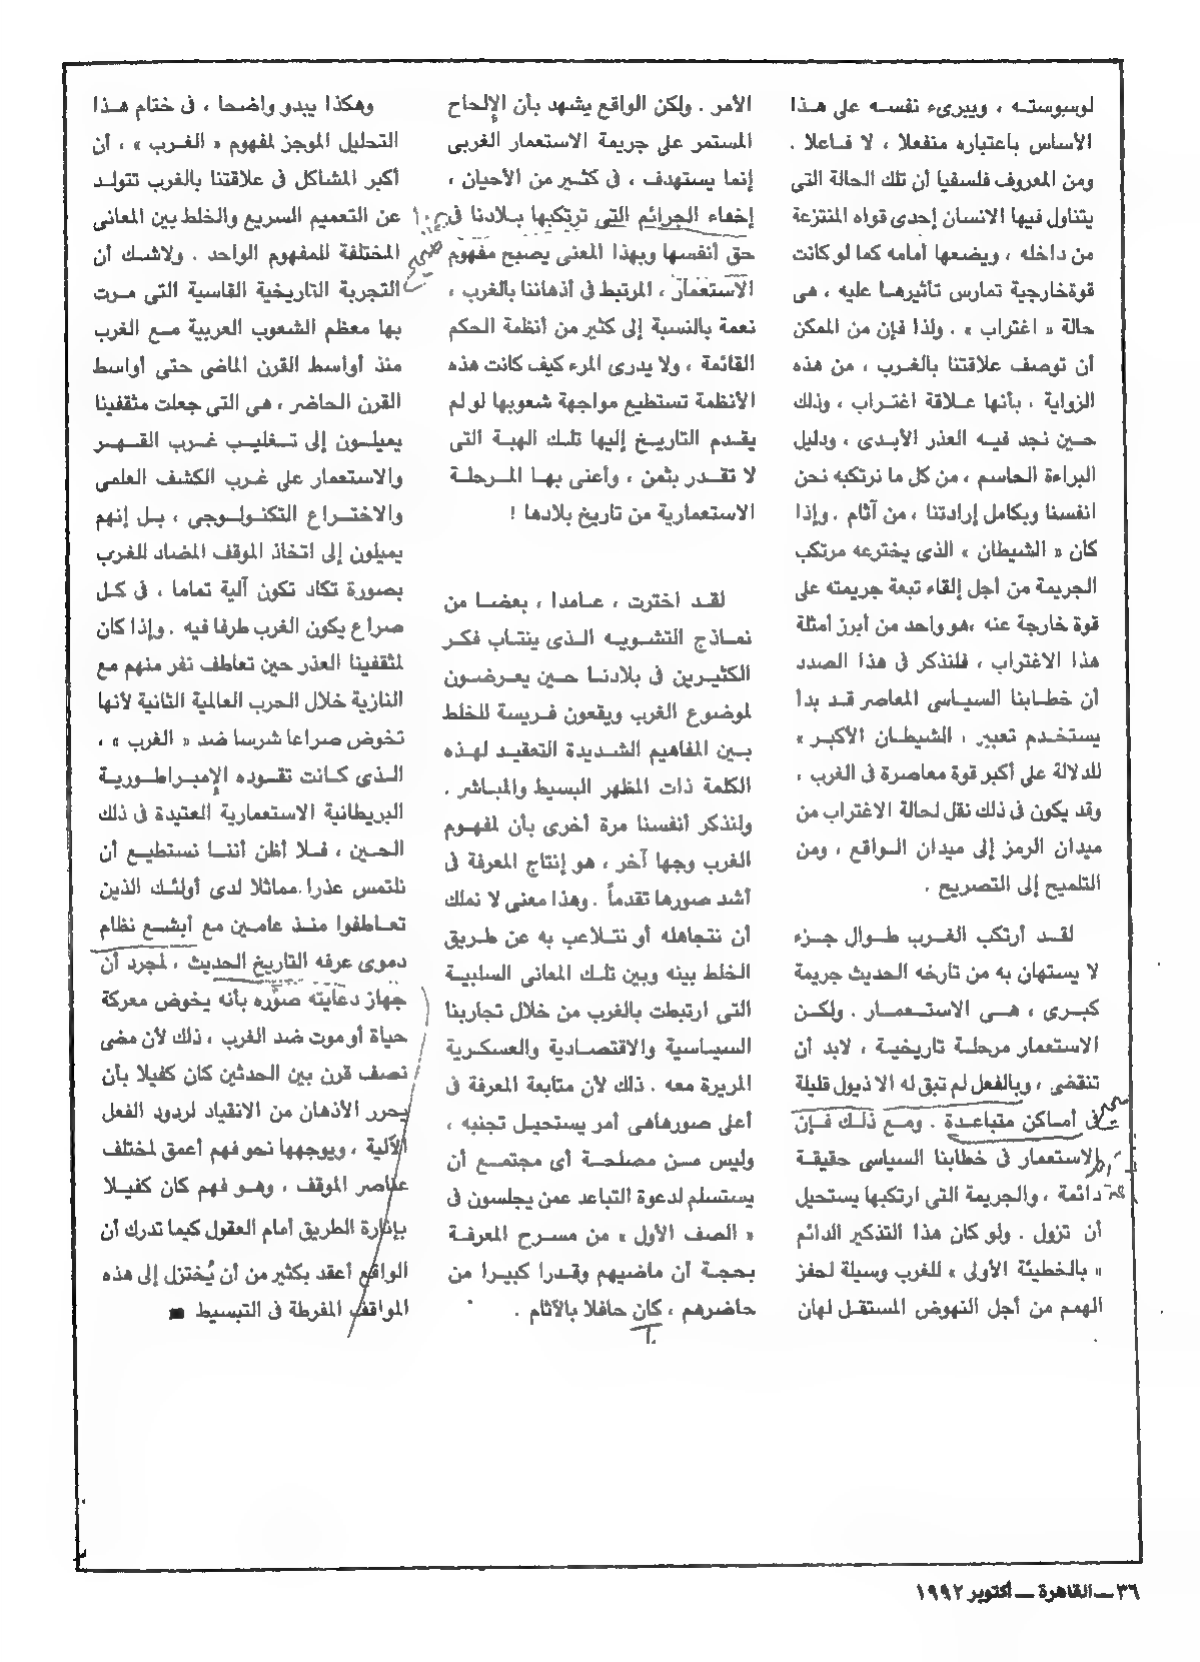 لوسوسته ، ويبرىء نفسه على هذا
الأساس باعتباره منفعلا ، لا فاعلا .
ومن المعروف فلسفيا أن تلك الحالة التى
يتناول فيها الانسان إحدى قواه المنتزعة
من داخله ، ويضعها أمامه كما لو كانت
قوة خارجية تمارس تأثيرها عليه ، هى
حالة « اغتراب » . ولذا فإن من الممكن
أن توصف علاقتنا بالغرب ، من هذه
الزواية ، بأنها علاقة اغتراب ، وذلك
حين نجد فيه العذر الأبدى ، ودليل
البراءة الحاسم ، من كل ما نرتكبه نحن
انفسنا وبكامل إرادتنا ، من آثام . وإذا
كان « الشيطان » الذى يخترعه مرتكب
الجريمة من أجل إلقاء تبعة جريمته على
قوة خارجة عنه ، هو واحد من أبرز أمثلة
هذا الاغتراب ، فلنذكر فى هذا الصدد
أن خطابنا السياسى المعاصر قد بدأ
يستخدم تعبير ، الشيطان الأكبر »
للدلالة على أكبر قوة معاصرة فى الغرب ،
وقد يكون فى ذلك نقل لحالة الاغتراب من
ميدان الرمز إلى ميدان الواقع ، ومن
التلميح إلى التصريح .
لقد أرتكب الغرب طوال جزء
لا يستهان به من تارخه الحديث جريمة
كبرى ، هى الاستعمار . ولكن
الاستعمار مرحلة تاريخية ، لابد أن
تنقضى ، وبالفعل لم تبق له الا ذيول قليلة
فى أماكن متباعدة . ومع ذلك فإن
الاستعمار فى خطابنا السياسى حقيقة
دائمة ، والجريمة التى ارتكبها يستحيل
أن تزول . ولو كان هذا التذكير الدائم
« بالخطيئة الأولى » للغرب وسيلة لحفز
الهمم من أجل النهوض المستقل لهان
الأمر . ولكن الواقع يشهد بأن الإلحاح
المستمر على جريمة الاستعمار الغربى
إنما يستهدف ، فى كثير من الأحيان ،
إخفاء الجرائم التى ترتكبها بلادنا فى
حق أنفسها وبهذا المعنى يصبح مفهوم
الاستعمار ، المرتبط فى أذهاننا بالغرب ،
نعمة بالنسبة إلى كثير من أنظمة الحكم
القائمة ، ولا يدرى المرء كيف كانت هذه
الأنظمة تستطيع مواجهة شعوبها لو لم
يقدم التاريخ إليها تلك الهبة التى
لا تقدر بثمن ، وأعنى بها المرحلة
الاستعمارية من تاريخ بلادها !
لقد اخترت ، عامدا ، بعضا من
نماذج التشويه الذى ينتاب فكر
الكثيرين فى بلادنا حين يعرضون
لموضوع الغرب ويقعون فريسة للخلط
بين المفاهيم الشديدة التعقيد لهذه
الكلمة ذات المظهر البسيط والمباشر .
ولنذكر أنفسنا مرة أخرى بأن لمفهوم
الغرب وجها آخر ، هو إنتاج المعرفة فى
أشد صورها تقدماً . وهذا معنى لا نملك
أن نتجاهله أو نتلاعب به عن طريق
الخلط بينه وبين تلك المعانى السلبية
التى ارتبطت بالغرب من خلال تجاربنا
السياسية والاقتصادية والعسكرية
المريرة معه . ذلك لأن متابعة المعرفة فى
أعلى صورهاهى أمر يستحيل تجنبه ،
وليس من مصلحة أى مجتمع أن
يستسلم لدعوة التباعد عمن يجلسون فى
« الصف الأول » من مسرح المعرفة
بحجة أن ماضيهم وقدرا كبيرا من
حاضرهم ، كان حافلا بالآثام .
وهكذا يبدو واضحا ، فى ختام هذا
التحليل الموجز لمفهوم « الغرب » ، أن
أكبر المشاكل فى علاقتنا بالغرب تتولد
عن التعميم السريع والخلط بين المعانى
المختلفة للمفهوم الواحد . ولاشك أن
التجربة التاريخية القاسية التى مرت
بها معظم الشعوب العربية مع الغرب
منذ أواسط القرن الماضى حتى أواسط
القرن الحاضر ، هى التى جعلت مثقفينا
يميلون إلى تغليب غرب القهر
والاستعمار على غرب الكشف العلمى
والاختراع التكنولوجى ، بل إنهم
يميلون إلى اتخاذ الموقف المضاد للغرب
بصورة تكاد تكون آلية تماما ، فى كل
صراع يكون الغرب طرفا فيه . وإذا كان
لمثقفينا العذر حين تعاطف نفر منهم مع
النازية خلال الحرب العالمية الثانية لأنها
تخوض صراعا شرسا ضد « الغرب » ،
الذى كانت تقوده الإمبراطورية
البريطانية الاستعمارية العتيدة فى ذلك
الحين ، فلا أظن أننا نستطيع أن
نلتمس عذرا مماثلا لدى أولئك الذين
تعاطفوا منذ عامين مع أبشع نظام
دموى عرفه التاريخ الحديث ، لمجرد أن
جهاز دعايته صوّره بأنه يخوض معركة
حياة أو موت ضد الغرب ، ذلك لأن مضى
نصف قرن بين الحدثين كان كفيلا بأن
يحرر الأذهان من الانقياد لردود الفعل
الآلية ، ويوجهها نحو فهم أعمق لمختلف
عناصر الموقف ، وهو فهم كان كفيلا
بإنارة الطريق أمام العقول كيما تدرك أن
الواقع أعقد بكثير من أن يُختزل إلى هذه
المواقف المفرطة فى التبسيط ■
٣٦ — القاهرة — أكتوبر ١٩٩٢